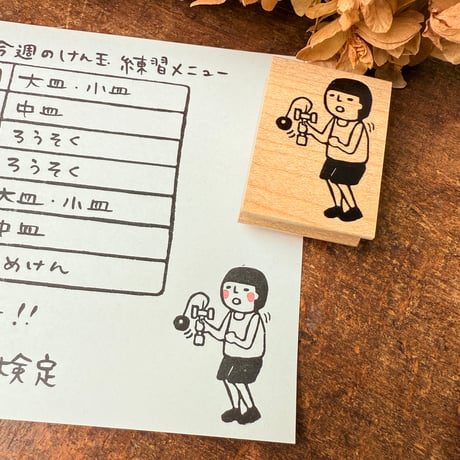 今週のけん玉 練習メニュー
大皿・小皿
中皿
ろうそく
ろうそく
大皿・小皿
中皿
めけん
!!
検定